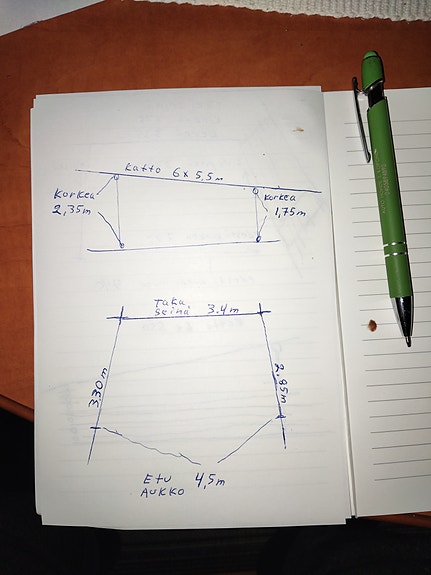 Katto 6 x 5,5m
Korkea
2,35m
Korkea
1,75m
Taka
seinä 3.4m
3.30m
2.85m
Etu 4,5m
AUKKO